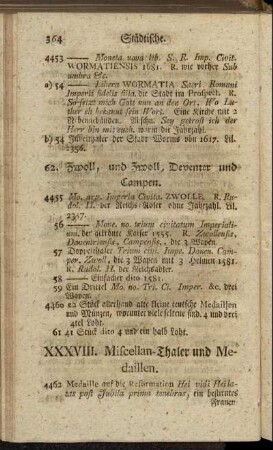 364 Städtische.
4453 — Moneta nova lib. S. R. Imp. Civit.
WORMATIENSIS 1681. R. wie vorher. Sub
umbra &c.
a) 54 — Libera WORMATIA Sacri Romani
Imperii fidelis filia. die Stadt im Prospect. R.
So setzt mich Gott nun an den Ort, Wo Lu
ther eh bekennt sein Wort. Eine Kirche mit 2
Nebengebäuden. Abschn. Sey getrost ich der
Herr bin mit euch. worin die Jahrzahl.
b) 54 Jubelthaler der Stadt Worms von 1617. Lil.
2356.
62. Zwoll, und Zwoll, Deventer und
Campen.
4455 Mo. arg. Imperia. Civita. ZWOLLE. R. Ru
dol. II. der Reichs-Adler ohne Jahrzahl. Lil.
2367.
56 — Mone. no. trium civitatum Imperiali-
um. der gekrönte Kaiser 1555. R. Zwollensis,
Davontriensis, Campensis. die 3 Wapen.
57 Doppelthaler Trium civi. Imp. Daven. Cam
per. Zwoll, die 3 Wapen mit 3 Helmen 1581.
R. Rudol. II. der Reichsadler.
58 — Einfacher dito 1581.
59 Ein Drittel Mo. no. Tri. Ci. Imper. &c. drey
Wapen.
4460 62 Stück allerhand alte kleine teutsche Medaillen
und Münzen, worunter viele seltene sind. 4 und drei
4tel Loht.
61 41 Stück dito 4 und ein halb Loht.
XXXVIII. Miscellan-Thaler und Me-
daillen.
4462 Medaille auf die Reformation Hei vidi Hei la
tas post Jubila prima tenebras, ein bestürztes
Frauen